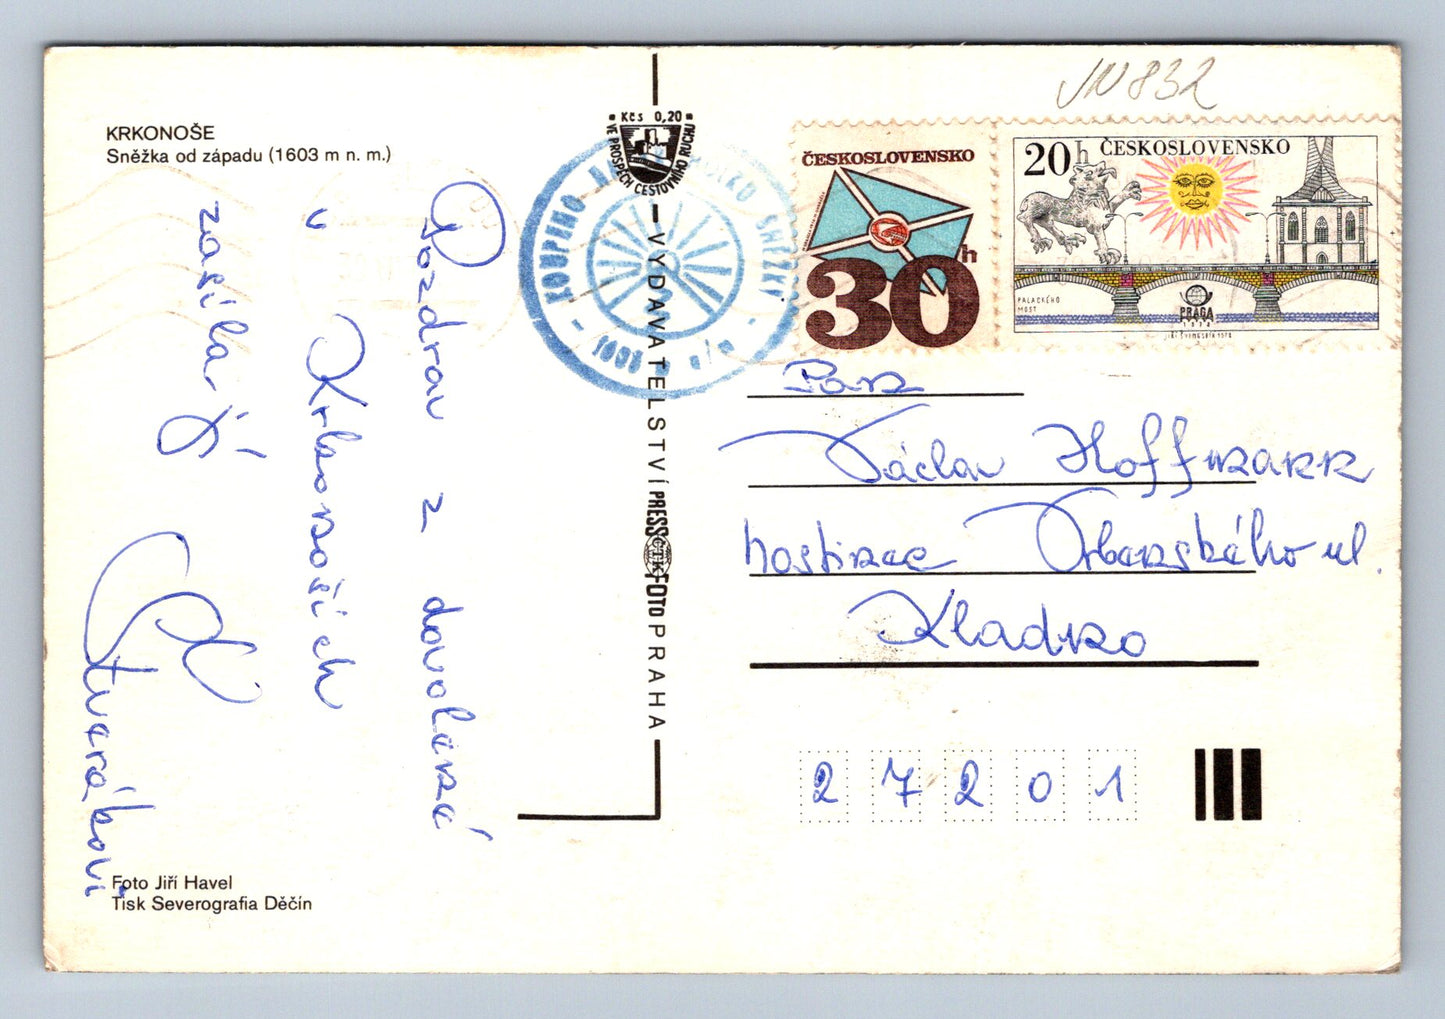 JN 832
KRKONOŠE
Sněžka od západu (1603 m n. m.)
Kčs 0,20
VE PROSPĚCH CESTOVNÍHO RUCHU
KOUPENO
SNĚŽKY
ČESKOSLOVENSKO
30h
20h ČESKOSLOVENSKO
PALACKÉHO
MOST
PRAGA
1978
Pozdrav z dovolené
v Krkonoších
zasílají
Stuarákovi
VYDAVATELSTVÍ PRESSFOTO PRAHA
ČTK
Pan
Václav Hoffmann
hostinec Orbenského ul.
Kladno
27201
Foto Jiří Havel
Tisk Severografia Děčín